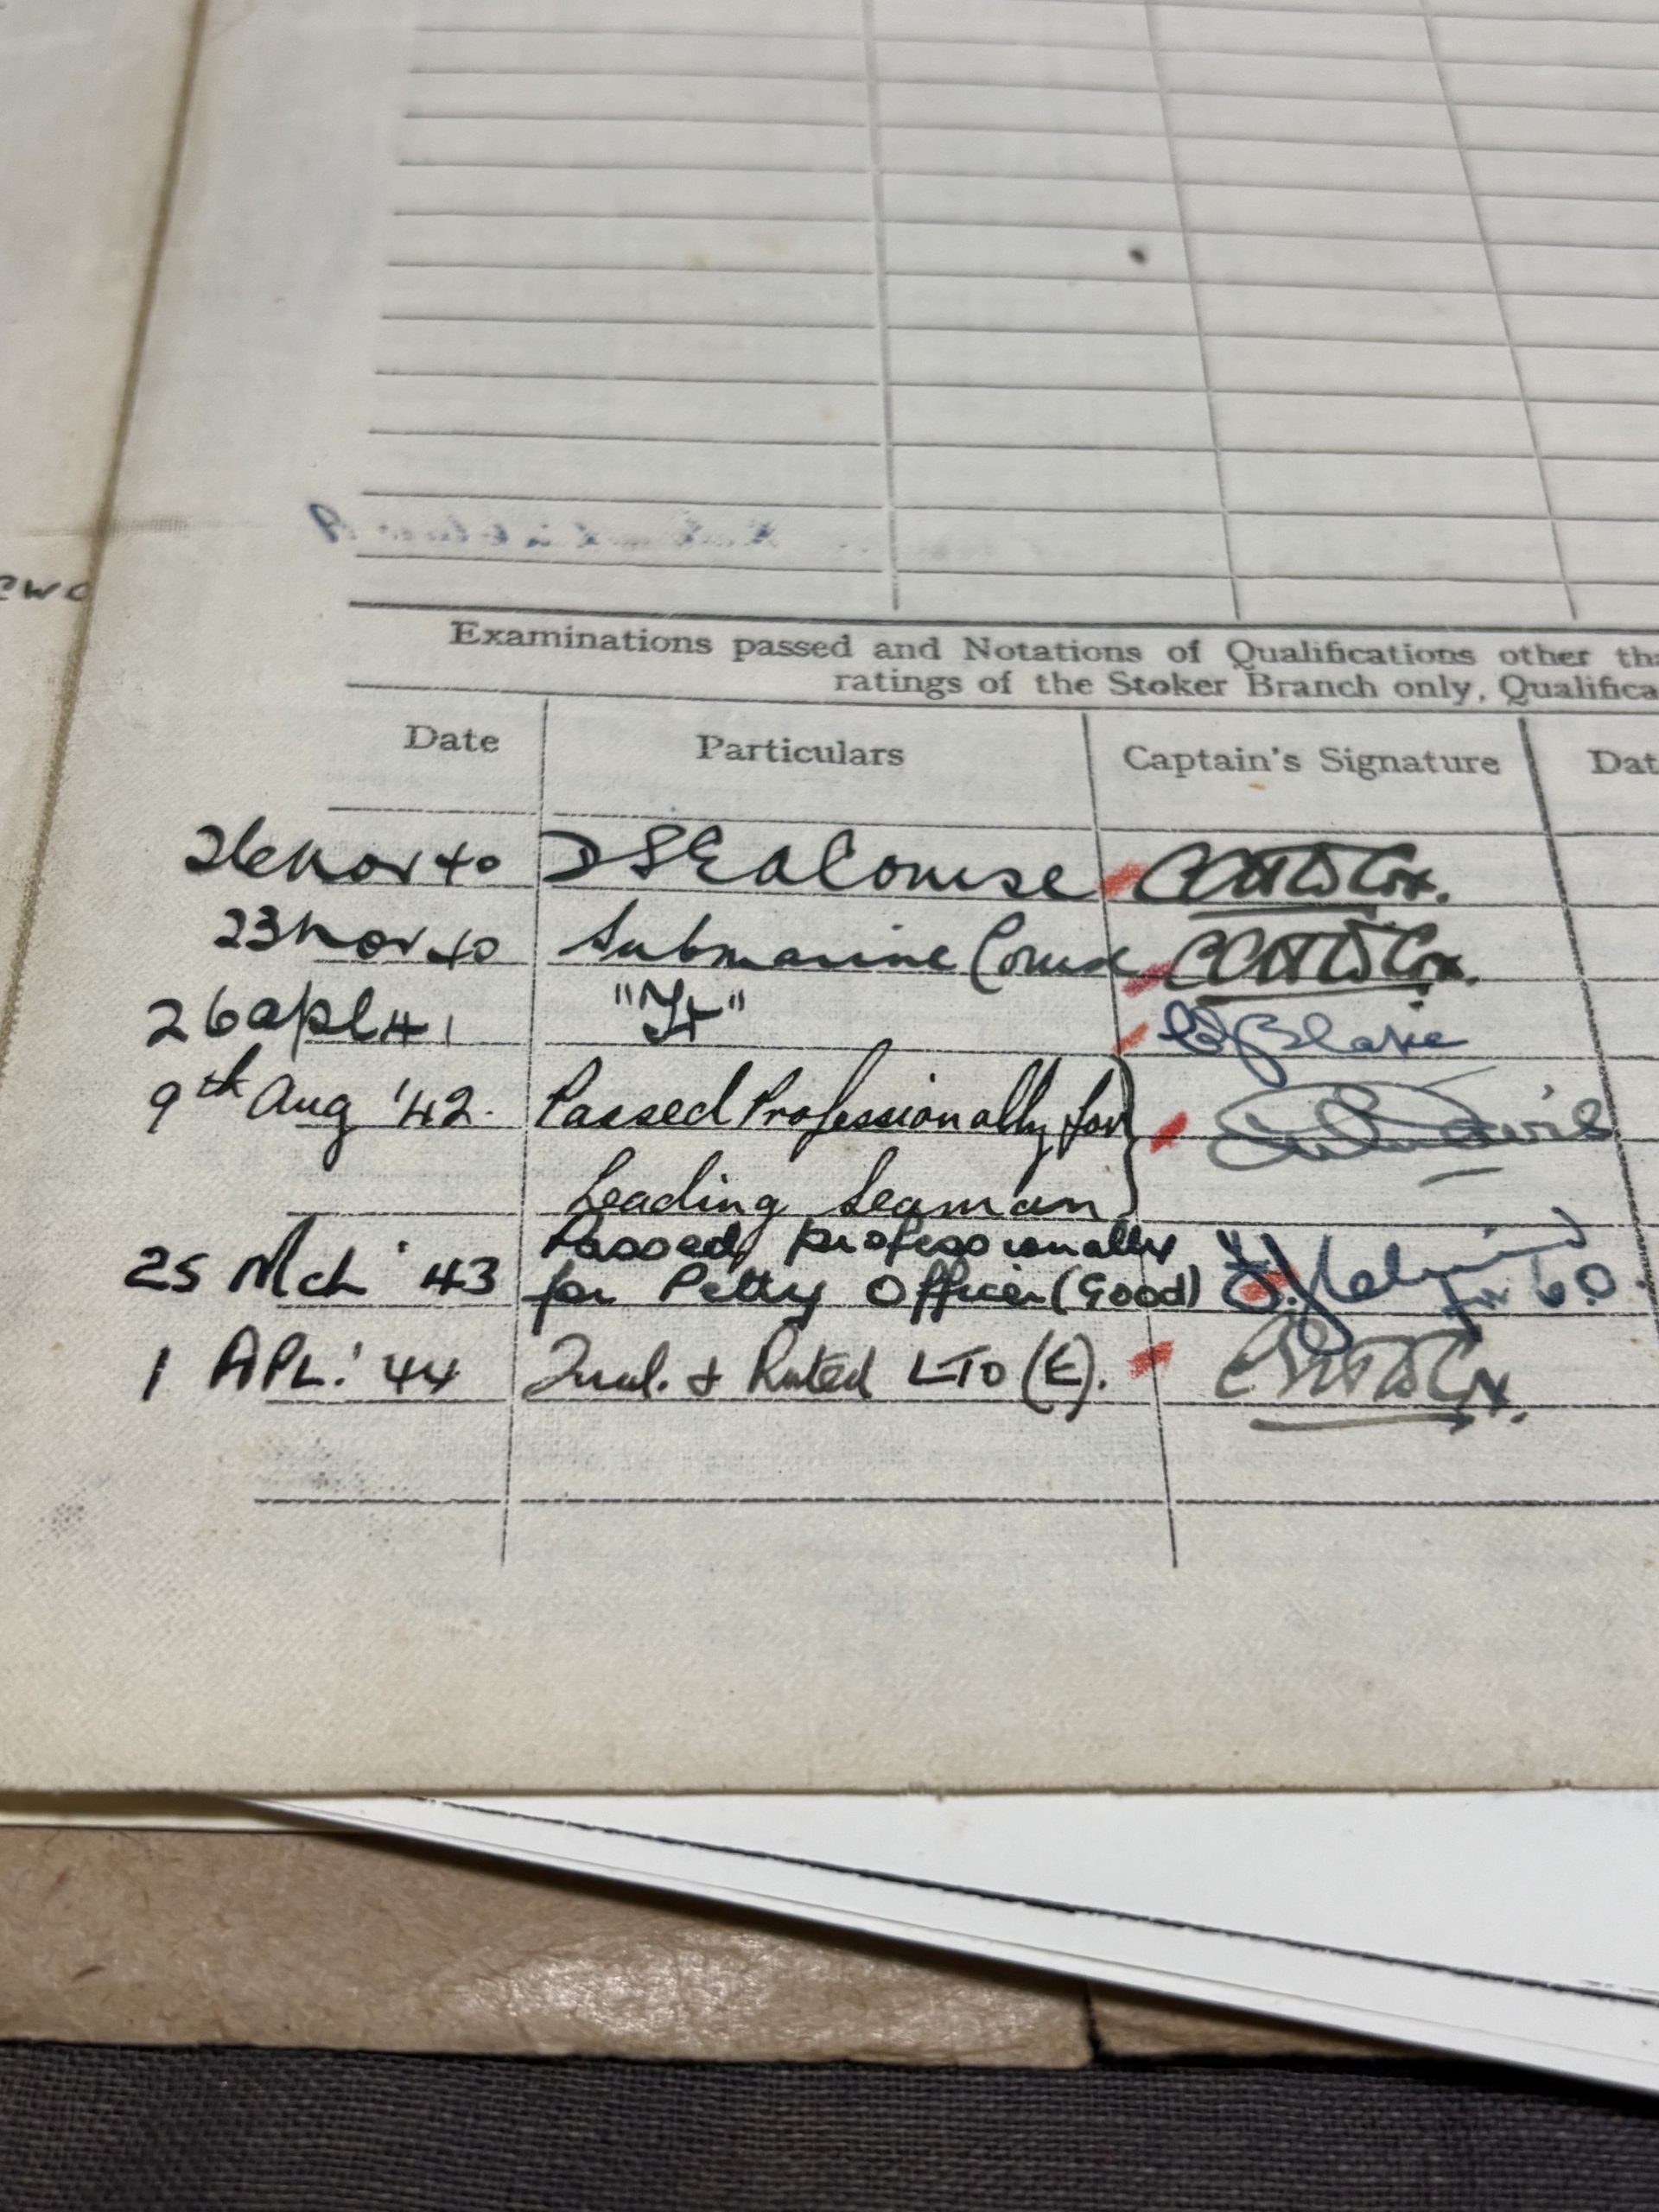 Examinations passed and Notations of Qualifications other tha
ratings of the Stoker Branch only, Qualifica
Date Particulars Captain's Signature Dat
26 Nov 40 DSEA Course
23 Nov 40 Submarine Course
26 Apl 41 Blake
9th Aug '42. Passed Professionally for
Leading Seaman
25 Mch '43 Passed professionally
for Petty Officer (Good)
1 APL. '44 Qual. & Rated LTO (E).